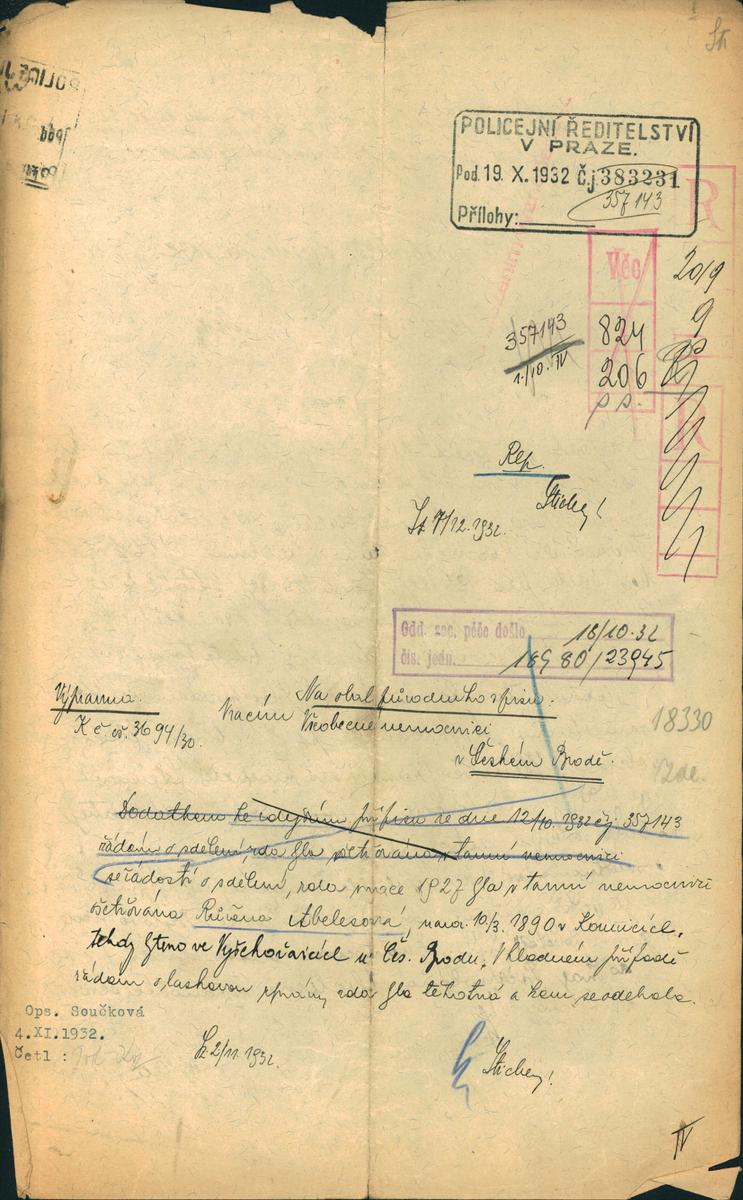 POLICEJNÍ ŘEDITELSTVÍ
V PRAZE.
Pod. 19. X. 1932 Čj 383231
357143
Přílohy:
R
Věc
20/9
9
357143
824
1./10. IV
206
Rep.
Stichy!
7/12. 1932.
Odd. soc. péče došlo 18/10. 32
čís. jedn. 18980/23945
Výpravna.
Na obal původního spisu.
K č. 3694/30.
Vracím Všeobecné nemocnici
v Českém Brodě.
18330
Dodatkem ke zdejšímu přípisu ze dne 12/10. 1932 čj. 357143
žádám o sdělení, zda byla ošetřována v tamní nemocnici
se žádostí o sdělení, zda v roce 1927 byla v tamní nemocnici
ošetřována Růžena Abelesová, naroz. 10/3. 1890 v Kounicích,
tehdy bytem ve Vyšehořovicích u Čes. Brodu. V kladném případě
žádám o laskavou zprávu, zda byla těhotná a kam se odebrala.
Ops. Součková
4.XI.1932.
Četl :
2/11. 1932.
Stichy!
IV